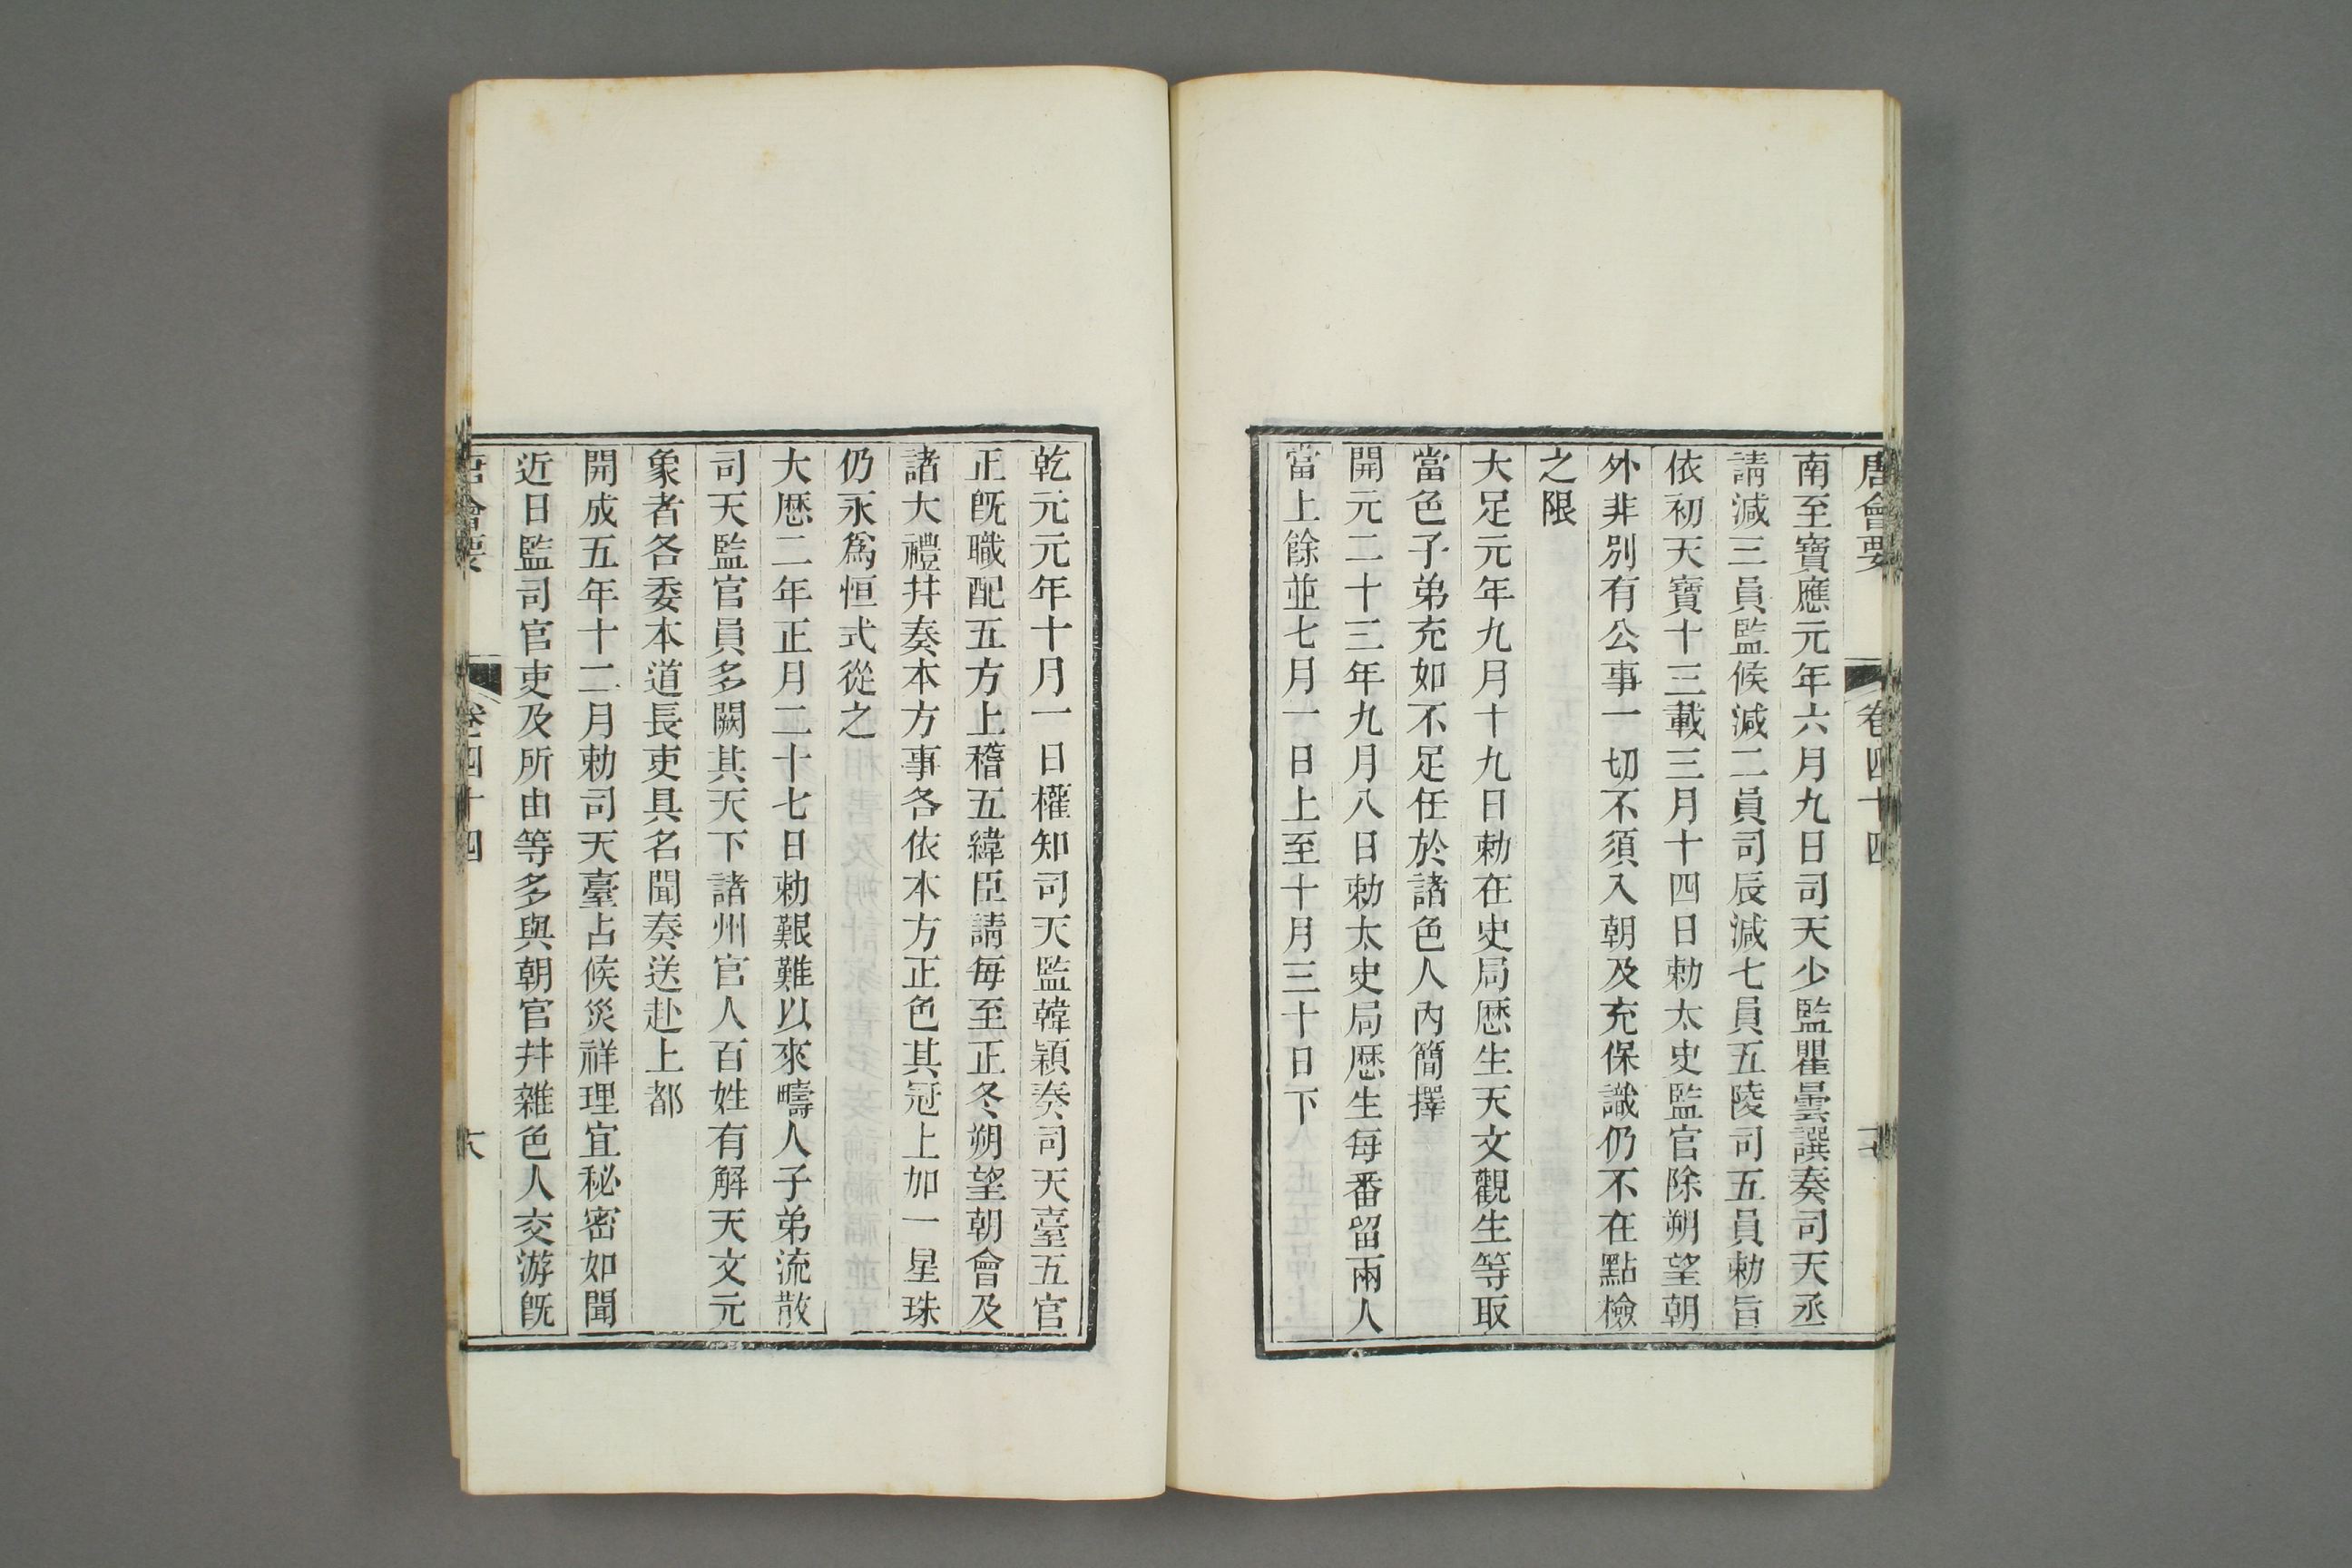 唐會要 卷四十四
南至寶應元年六月九日司天少監瞿曇譔奏司天丞
請減三員監候減二員司辰減七員五陵司五員勅旨
依初天寶十三載三月十四日勅太史監官除朔望朝
外非別有公事一切不須入朝及充保識仍不在點檢
之限
大足元年九月十九日勅在史局厯生天文觀生等取
當色子弟充如不足任於諸色人內簡擇
開元二十三年九月八日勅太史局厯生每番留兩人
當上餘並七月一日上至十月三十日下
乾元元年十月一日權知司天監韓穎奏司天臺五官
正旣職配五方上稽五緯臣請每至正冬朔望朝會及
諸大禮幷奏本方事各依本方正色其冠上加一星珠
仍永爲恒式從之
大厯二年正月二十七日勅艱難以來疇人子弟流散
司天監官員多闕其天下諸州官人百姓有解天文元
象者各委本道長吏具名聞奏送赴上都
開成五年十二月勅司天臺占候災祥理宜秘密如聞
近日監司官吏及所由等多與朝官幷雜色人交游旣
唐會要 卷四十四 六